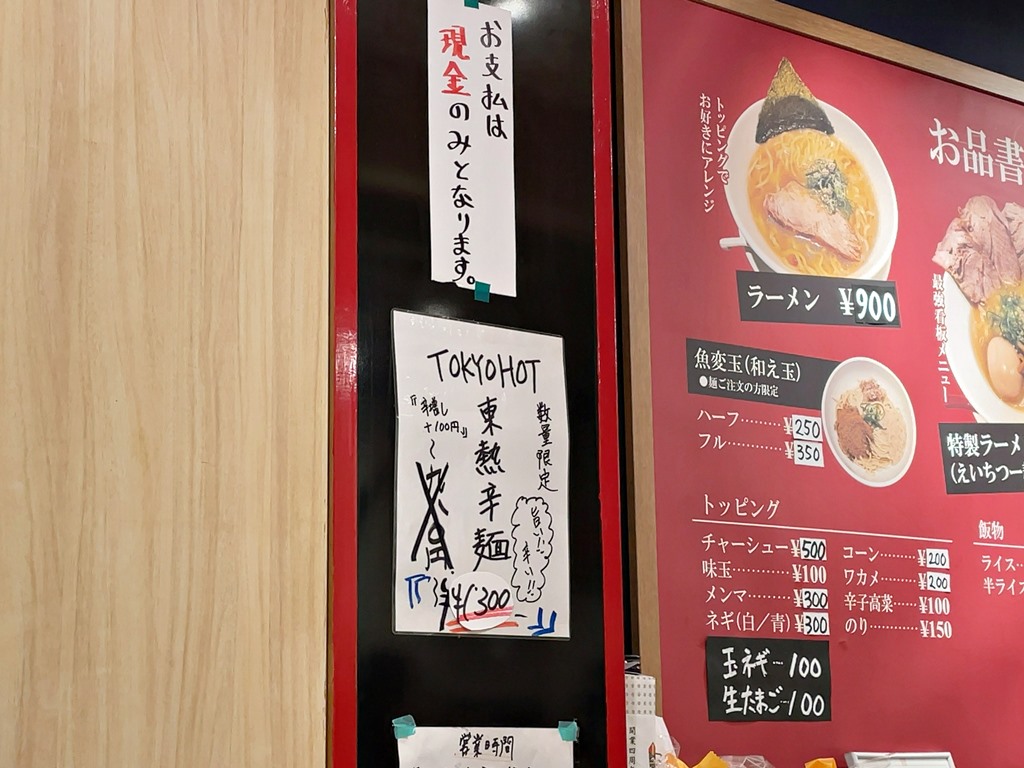 お支払は
現金のみとなります。
TOKYO HOT
数量限定
東熱辛麺
『辛増し
+100円』
旨い!!
辛い!!
¥1300-
営業時間
お品書
トッピングで
お好きにアレンジ
ラーメン ¥900
魚変玉(和え玉)
●麺ご注文の方限定
ハーフ………¥250
フル…………¥350
トッピング
チャーシュー¥500
味玉…………¥100
メンマ………¥300
ネギ(白／青)¥300
コーン………¥200
ワカメ………¥200
辛子高菜……¥100
のり…………¥150
玉ネギ…100
生たまご…100
最強看板メニュー
特製ラーメ
(えいちつー
飯物
ライス…
半ライス